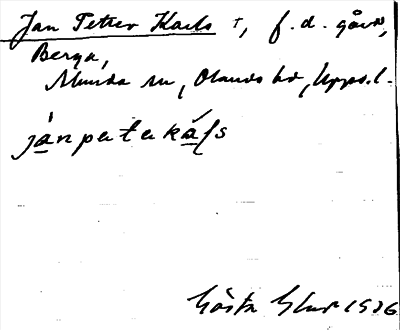 Jan Petter Karls †, f.d. gård,
Berga,
Munda sn, Olands hd, Upps. l.
jánpetekáls
Gösta 1936